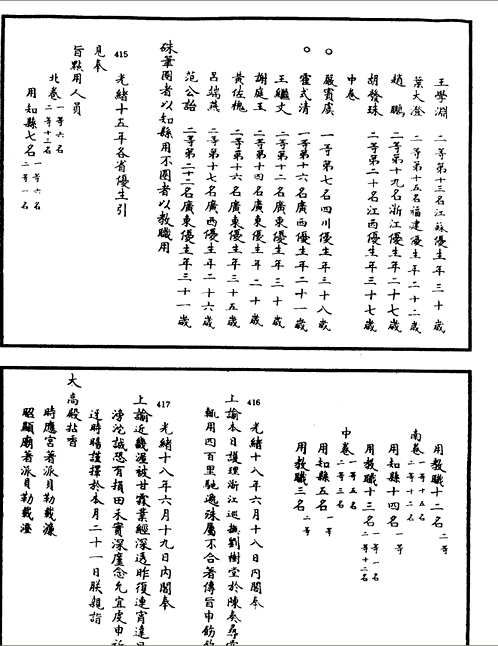 王學淵　二等第十三名江蘇優生年三十歲
葉大澄　二等第十五名福建優生年二十二歲
趙鵬　二等第十九名浙江優生年二十七歲
胡發珠　二等第二十名江西優生年三十七歲
中卷
○　嚴賓虞　一等第七名四川優生年三十八歲
○　霍式清　一等第十六名廣西優生年二十一歲
王繼文　二等第十二名廣東優生年三十歲
謝庭玉　二等第十四名廣東優生年二十歲
黃佐槐　二等第十六名廣東優生年三十五歲
呂瑞燕　二等第十七名廣西優生年二十六歲
范公詒　二等第二十二名廣東優生年三十一歲
硃筆圈者以知縣用不圈者以教職用
415　光緒十五年各省優生引
見奉
旨㸃用人員
北卷　一等六名　二等十二名
用知縣七名　一等六名　二等一名
用教職十二名　二等
南卷　一等十五名　二等十二名
用知縣十四名　一等
用教職十三名　一等一名　二等十二名
中卷　一等五名　二等三名
用知縣五名　一等
用教職三名　二等
416　光緒十八年六月十八日內閣奉
上諭本日護理浙江巡撫劉樹堂於陳奏尋常
輒用四百里馳遞殊屬不合著傳旨申飭
417　光緒十八年六月十九日內閣奉
上諭近畿渥被甘霖業經深透昨復連宵達旦
滂沱誠恐有損田禾實深廑念允宜虔申祈
迓時暘謹擇於本月二十一日朕親詣
大高殿拈香
時應宮著派貝勒載濂
昭顯廟著派貝勒載瀅